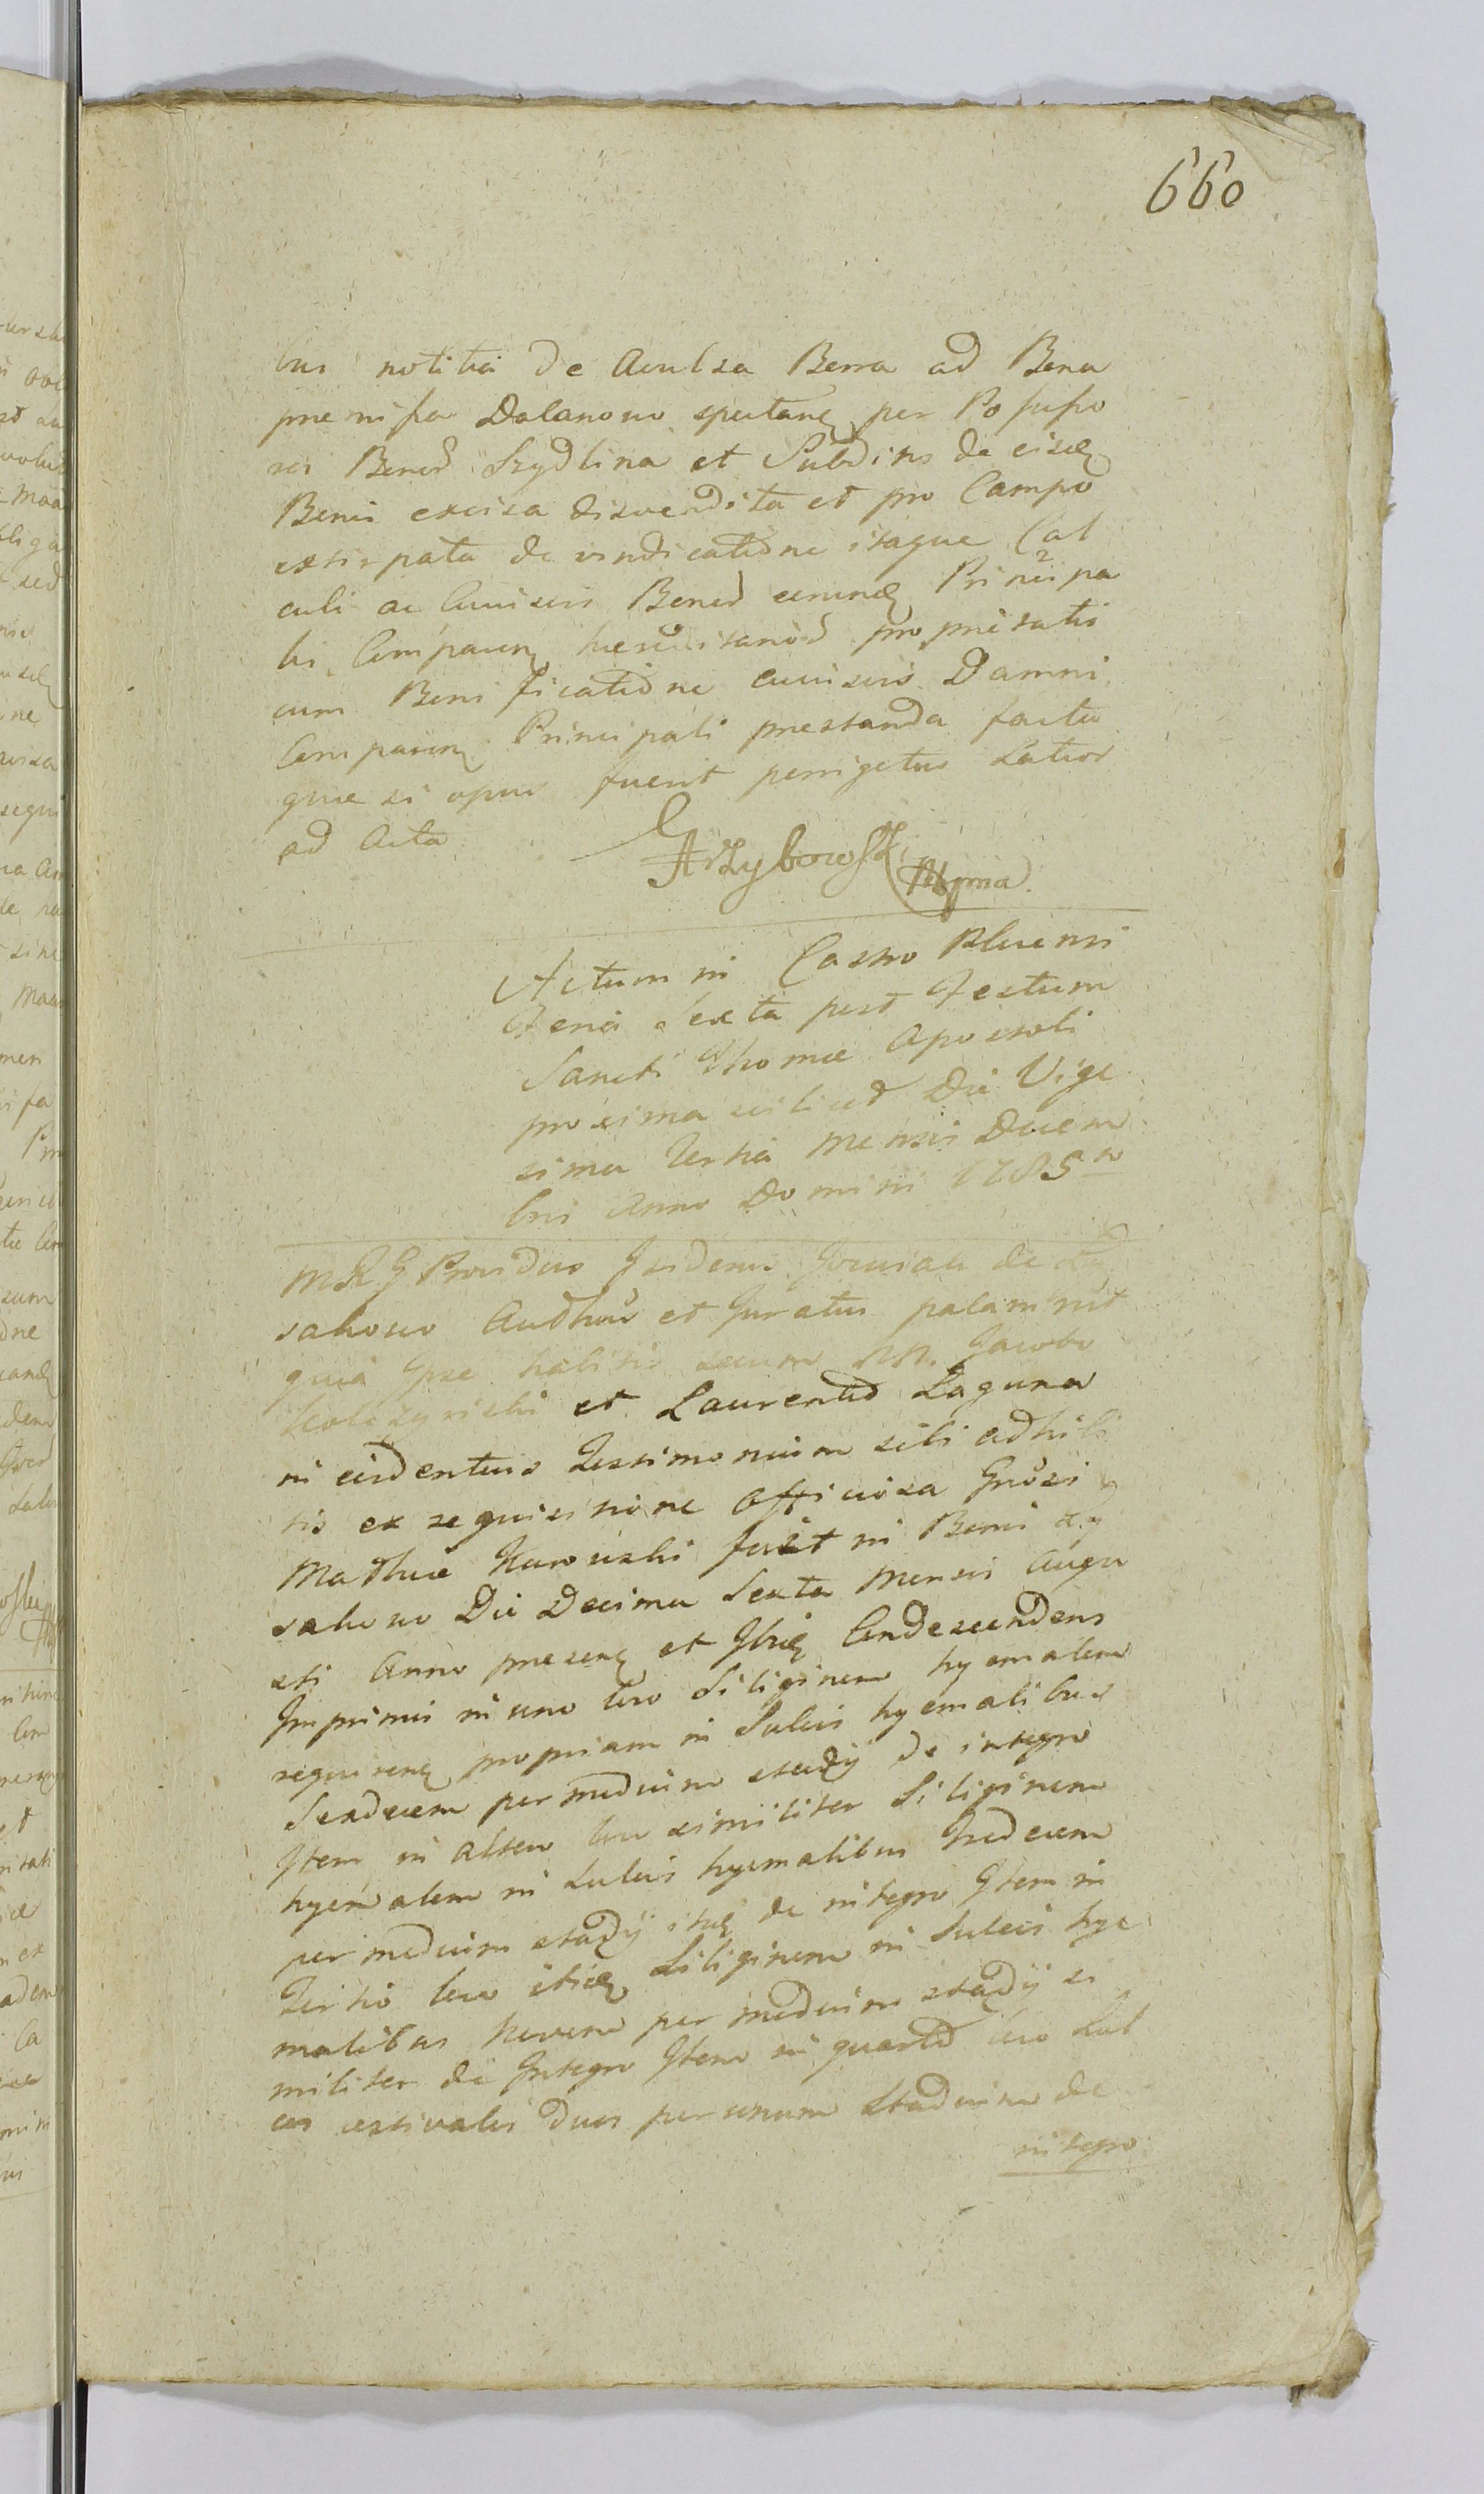 660
bus notitia de Avulsa Berra ad Bona
premissa Dalanowo spectanę per Possesso
res Bonoř Szydlina et Subditos de eisdę
Bonis excisa disvendita et pro Campo
extirpata de vindicatione itaque Cal
culi ac Cuiusvis Bonoř eorundę Principa
lis Comparenę hereditarioř proprietatis
cum Bonificatione cuiusvis Damni
Comparenę Principali prestanda factu
que si opus fuerit porrigetur Latior
ad Acta
Grzybowski Mpria
Actum in Castro Plocensi
Feria Sexta post Festum
Sancti Thomæ Apostoli
proxima scilicet Die Vige
sima Tertia Mensis Decem
bris Anno Domini 1785to
M R G Providus Isidorus
sakowo Authus et Juratus palam rńt
quia Ipse habitis secum NN. Jacobo
et Laurentio Laguna
in evidentius Testimonium sibi adhibi
tis ex requisitione Officiosa Gńosi
Mathiæ Karwoski fuit in Bonis
sakowo Die Decima Sexta Mensis Augu
sti Anno presenę et Ibidę Condescendens
Imprimis in uno loco Siliginem hyemalem
requirenę propriam in Sulcis hyemalibus
Sexdecem per medium stadij de integro
Item in altero loco similiter Siliginem
hyemalem in Sulcis hyemalibus Tredecem
per medium stadij itidę de integro Item in
Tertio loco itidę Siliginem in Sulcis hye
malibus Novem per medium stadij si
militer de Integro Item in quarto loco Sul
cos æstivales duos per unum Stadium de
integro